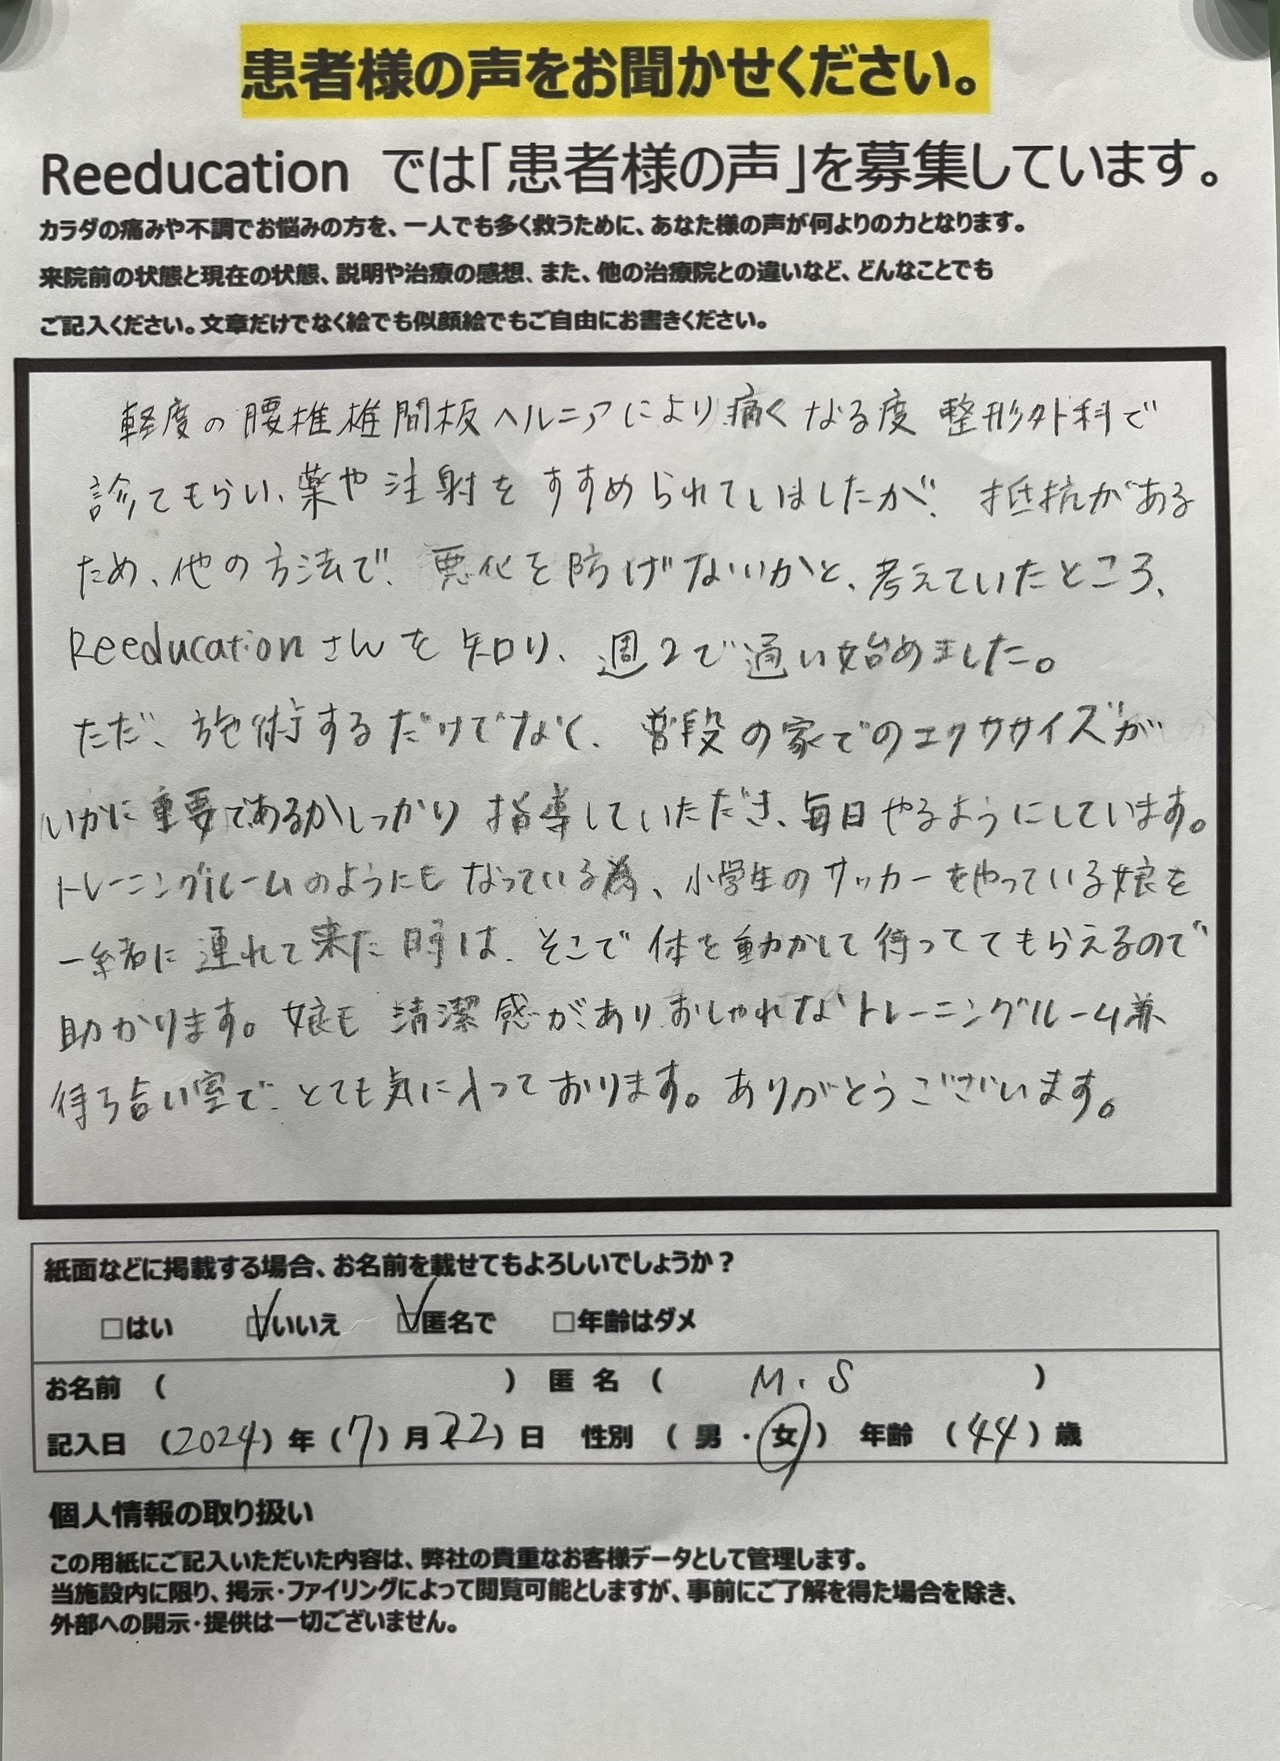 患者様の声をお聞かせください。
Reeducation では「患者様の声」を募集しています。
カラダの痛みや不調でお悩みの方を、一人でも多く救うために、あなた様の声が何よりの力となります。
来院前の状態と現在の状態、説明や治療の感想、また、他の治療院との違いなど、どんなことでも
ご記入ください。文章だけでなく絵でも似顔絵でもご自由にお書きください。
軽度の腰椎椎間板ヘルニアにより痛くなる度整形外科で
診てもらい、薬や注射をすすめられていましたが、抵抗がある
ため、他の方法で、悪化を防げないかと、考えていたところ、
Reeducationさんを知り、週2で通い始めました。
ただ、施術するだけでなく、普段の家でのエクササイズが
いかに重要であるかしっかり指導していただき、毎日やるようにしています。
トレーニングルームのようにもなっている為、小学生のサッカーをやっている娘を
一緒に連れて来た時は、そこで体を動かして待っててもらえるので
助かります。娘も清潔感がありおしゃれなトレーニングルーム兼
待ち合い室で、とても気に入っております。ありがとうございます。
紙面などに掲載する場合、お名前を載せてもよろしいでしょうか？
□はい ☑いいえ ☑匿名で □年齢はダメ
お名前 （ ） 匿 名 （ M.S ）
記入日 （2024）年（7）月22）日 性別 （ 男 ・ 女 ） 年齢 （44）歳
個人情報の取り扱い
この用紙にご記入いただいた内容は、弊社の貴重なお客様データとして管理します。
当施設内に限り、掲示・ファイリングによって閲覧可能としますが、事前にご了解を得た場合を除き、
外部への開示・提供は一切ございません。